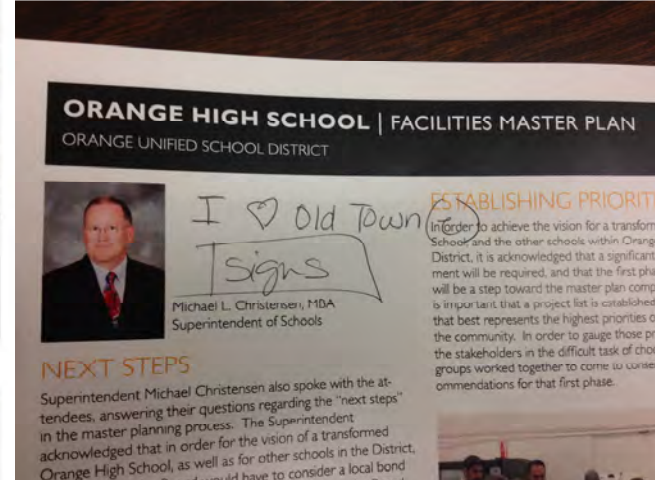 ORANGE HIGH SCHOOL | FACILITIES MASTER PLAN
ORANGE UNIFIED SCHOOL DISTRICT
I ♡ Old Town
signs
Michael L. Christensen, MBA
Superintendent of Schools
NEXT STEPS
Superintendent Michael Christensen also spoke with the at-
tendees, answering their questions regarding the "next steps"
in the master planning process. The Superintendent
acknowledged that in order for the vision of a transformed
Orange High School, as well as for other schools in the District,
would have to consider a local bond
ESTABLISHING PRIORIT
In order to achieve the vision for a transform
School, and the other schools within Orang
District, it is acknowledged that a significant
ment will be required, and that the first pha
will be a step toward the master plan comp
is important that a project list is established
that best represents the highest priorities o
the community. In order to gauge those pr
the stakeholders in the difficult task of cho
groups worked together to come to conse
ommendations for that first phase.